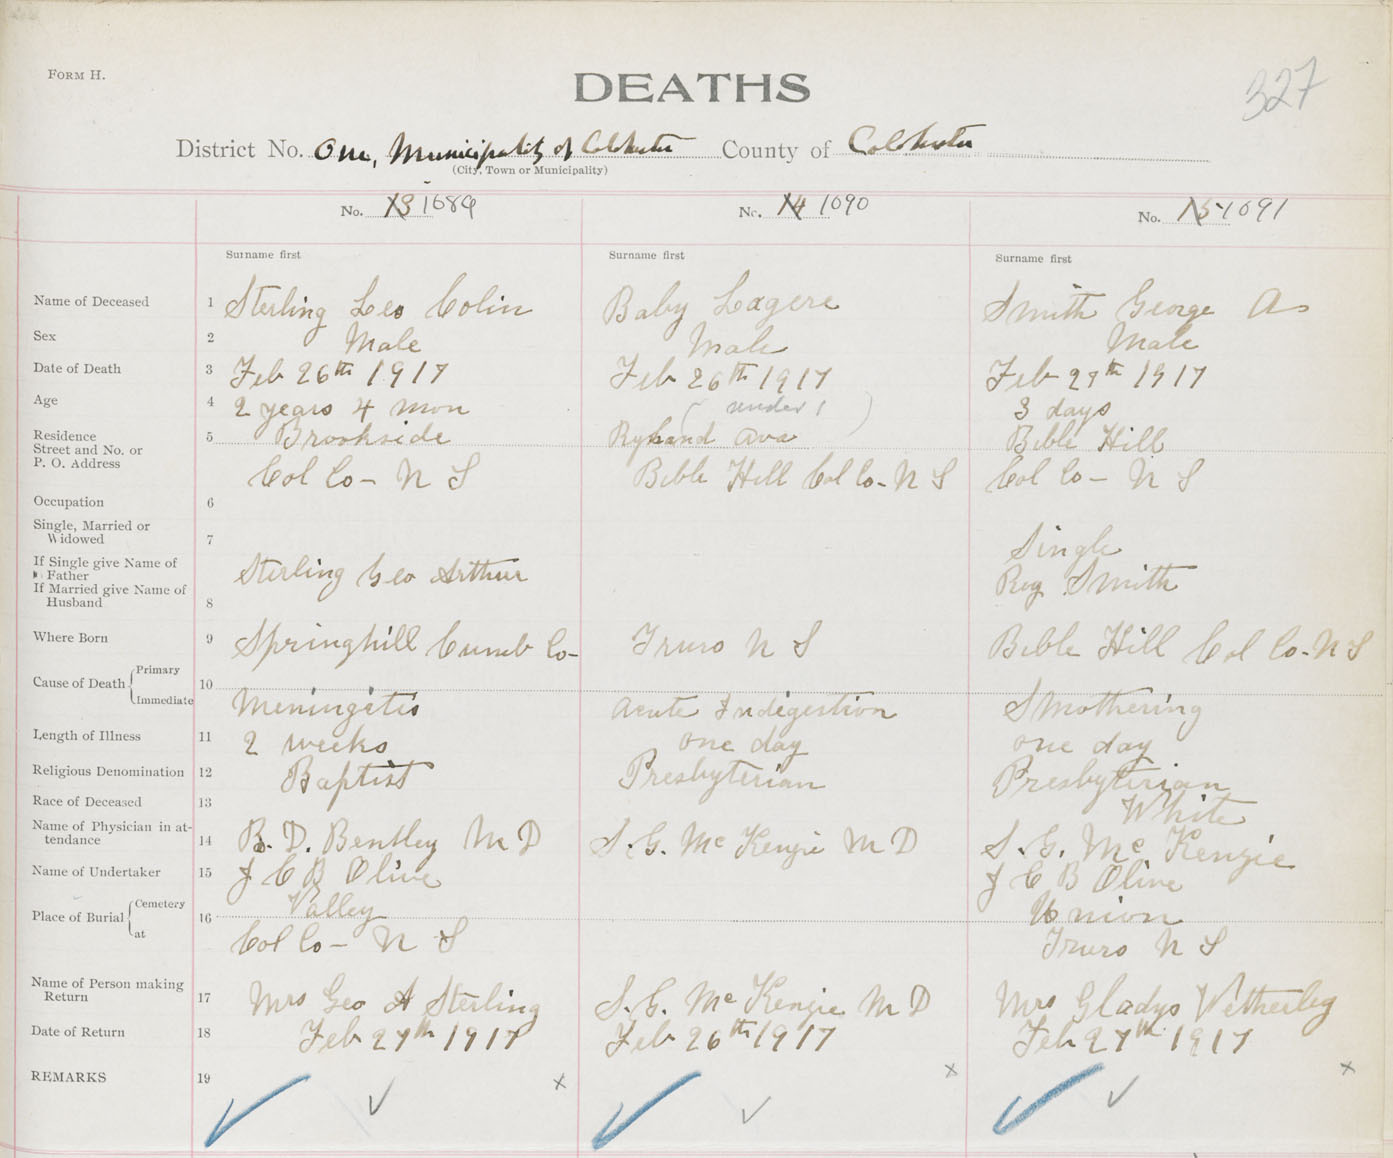 FORM H.
DEATHS
327
District No. One, Municipality of Colchester County of Colchester
(City, Town or Municipality)
No. 13 1089 No. 14 1090 No. 15 1091
Surname first Surname first Surname first
Name of Deceased 1 Sterling Leo Colin Baby Lagere Smith George A
Sex 2 Male Male Male
Date of Death 3 Feb 26th 1917 Feb 26th 1917 Feb 27th 1917
Age 4 2 years 4 mon (under 1) 3 days
Residence 5 Brookside Ava Bible Hill
Street and No. or
P. O. Address Col Co- N S Bible Hill Col Co- N S Col Co- N S
Occupation 6
Single, Married or
Widowed 7 Single
If Single give Name of
Father Sterling Geo Arthur Roy Smith
If Married give Name of
Husband 8
Where Born 9 Springhill Cumb Co- Truro N S Bible Hill Col Co- N S
Cause of Death Primary 10
Immediate Meningitis Acute Indigestion Smothering
Length of Illness 11 2 weeks one day one day
Religious Denomination 12 Baptist Presbyterian Presbyterian
Race of Deceased 13 White
Name of Physician in at-
tendance 14 B. D. Bentley M D S. G. McKenzie M D S. G. McKenzie
Name of Undertaker 15 J C B Olive J C B Olive
Place of Burial Cemetery 16 Valley Union
at Col Co- N S Truro N S
Name of Person making
Return 17 Mrs Geo A Sterling S. G. McKenzie M D Mrs Gladys Vetherley
Date of Return 18 Feb 27th 1917 Feb 26th 1917 Feb 27th 1917
REMARKS 19 x x x